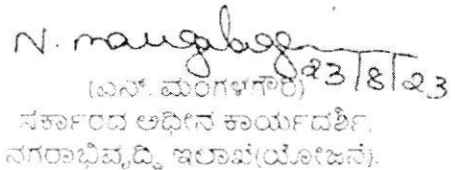 N. mangalagowri
23/8/23
(ಎನ್. ಮಂಗಳಗೌರಿ)
ಸರ್ಕಾರದ ಅಧೀನ ಕಾರ್ಯದರ್ಶಿ,
ನಗರಾಭಿವೃದ್ಧಿ ಇಲಾಖೆ(ಯೋಜನೆ).